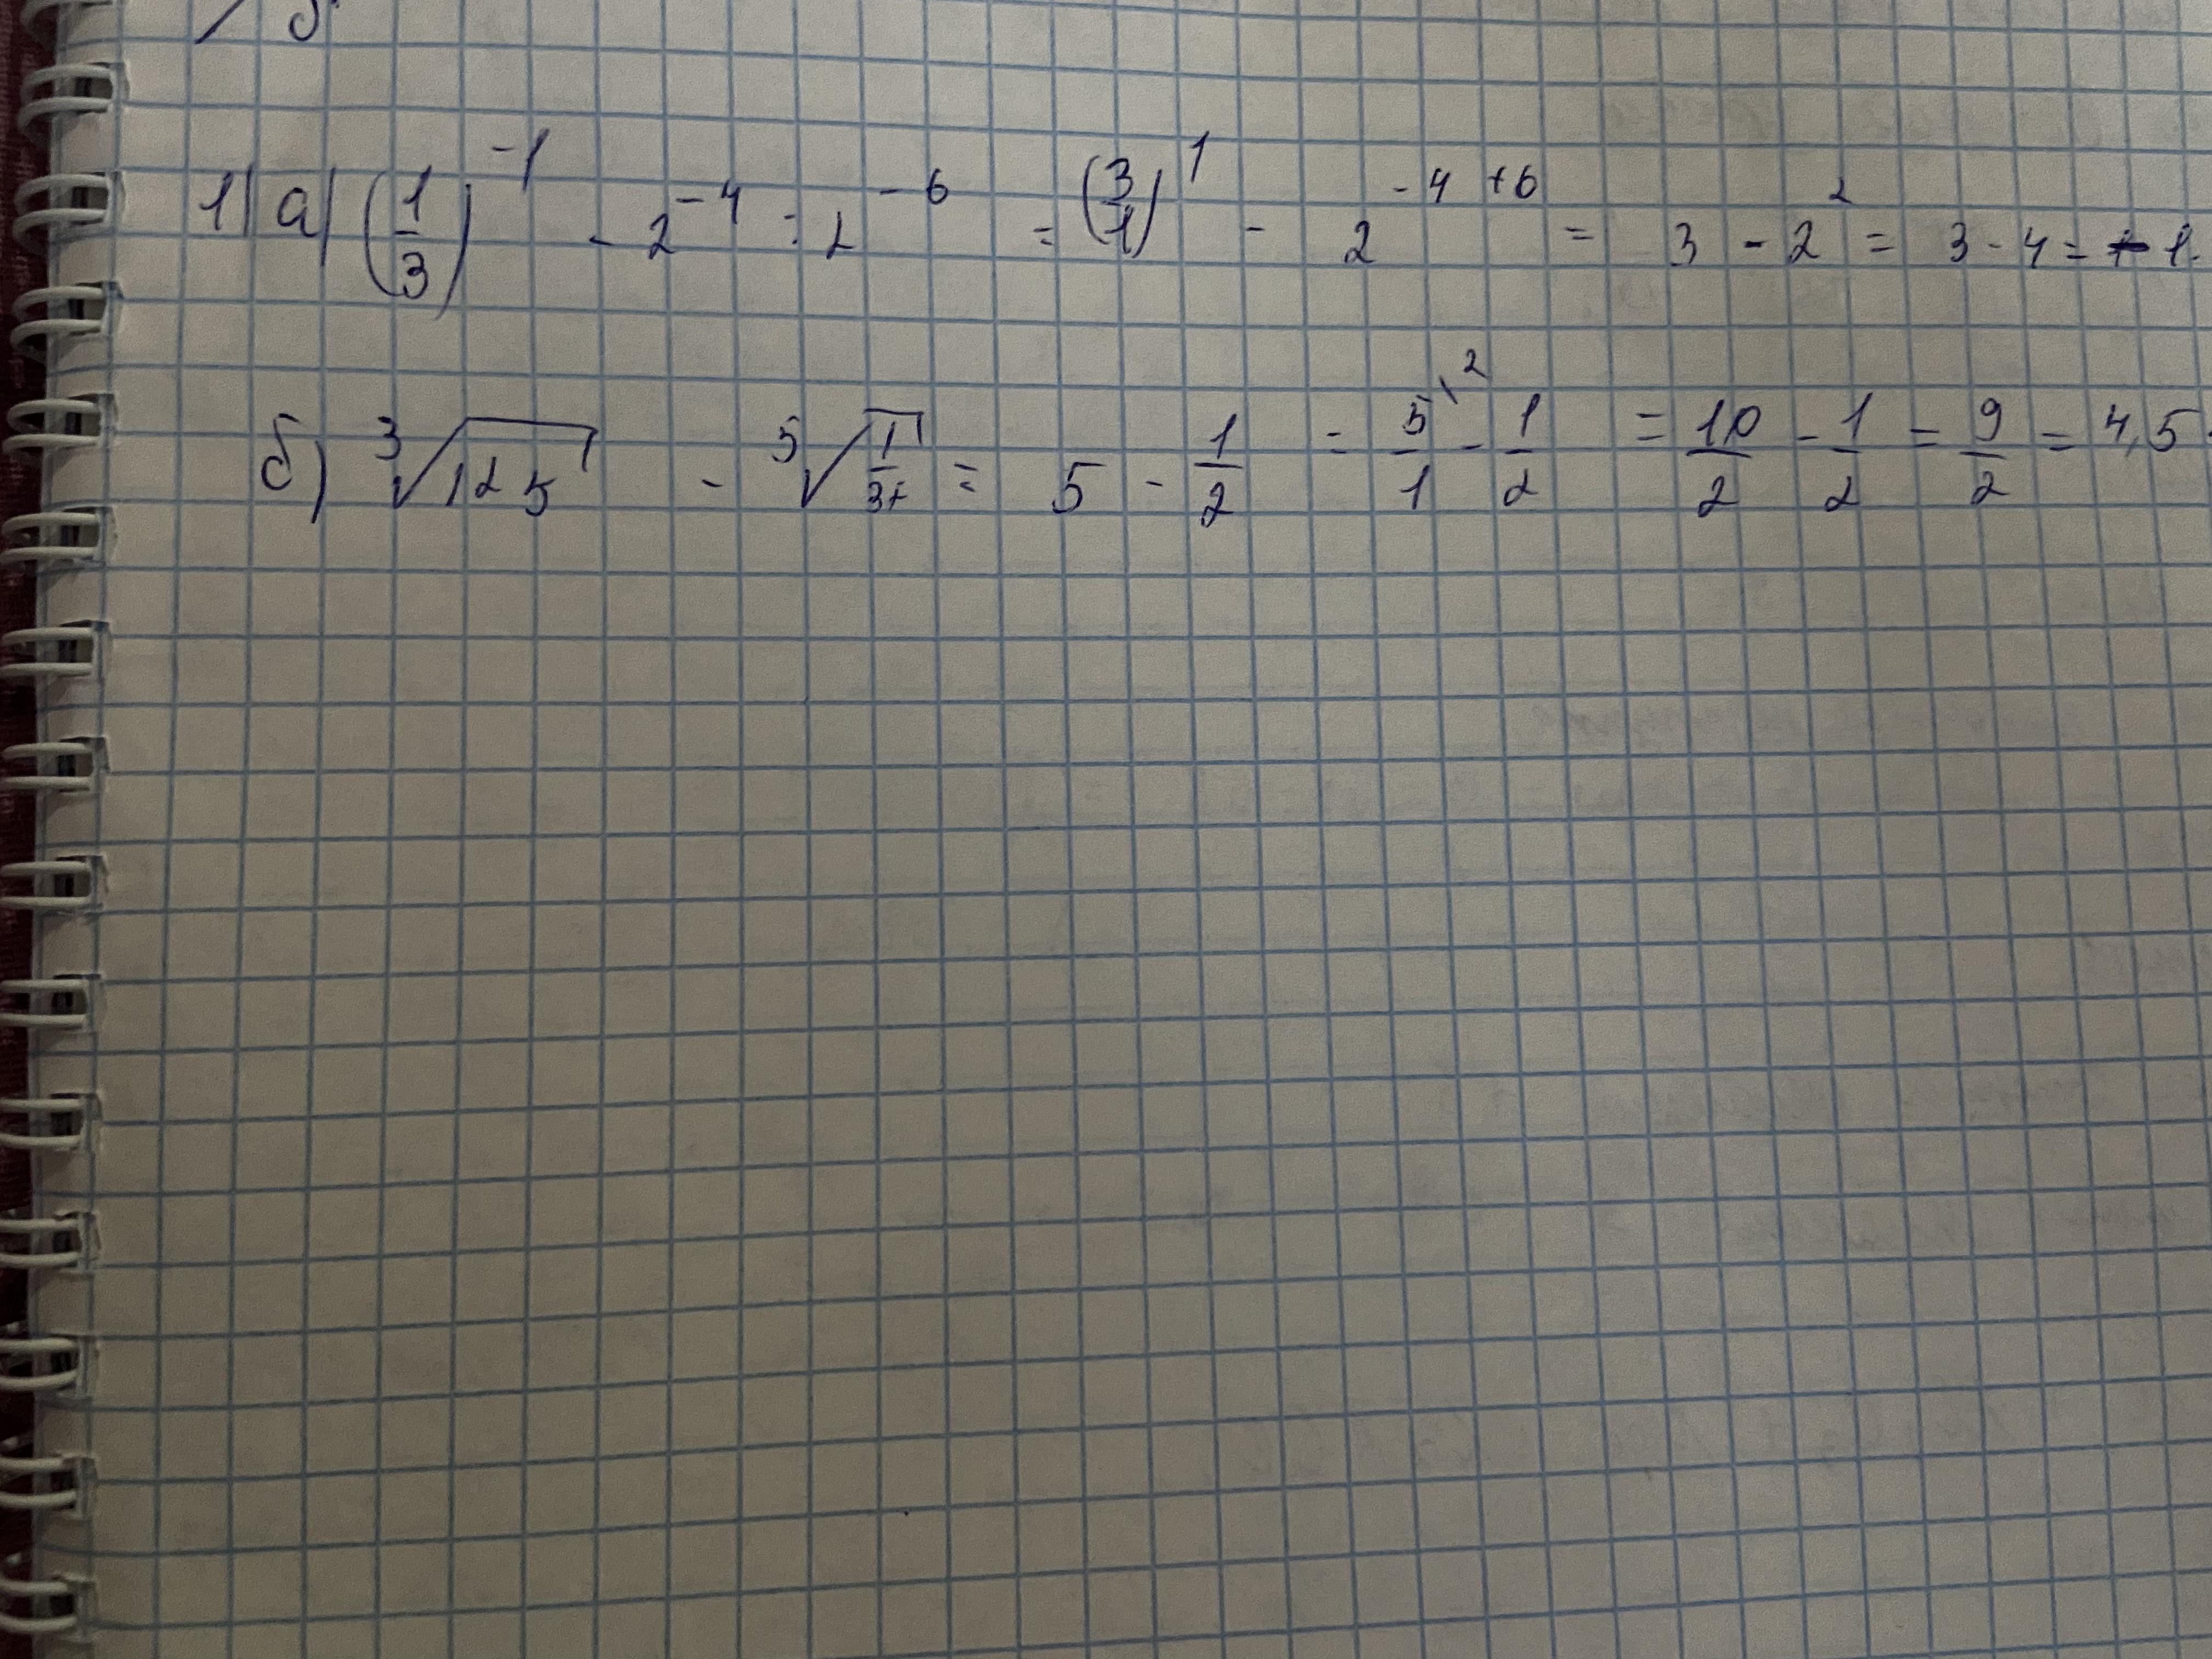 1) а) (1/3)^-1 - 2^-4 : 2^-6 = (3/1)^1 - 2^-4+6 = 3 - 2^2 = 3 - 4 = -1.
б) ³√125 - ⁵√1/32 = 5 - 1/2 = 5\2/1 - 1/2 = 10/2 - 1/2 = 9/2 = 4,5